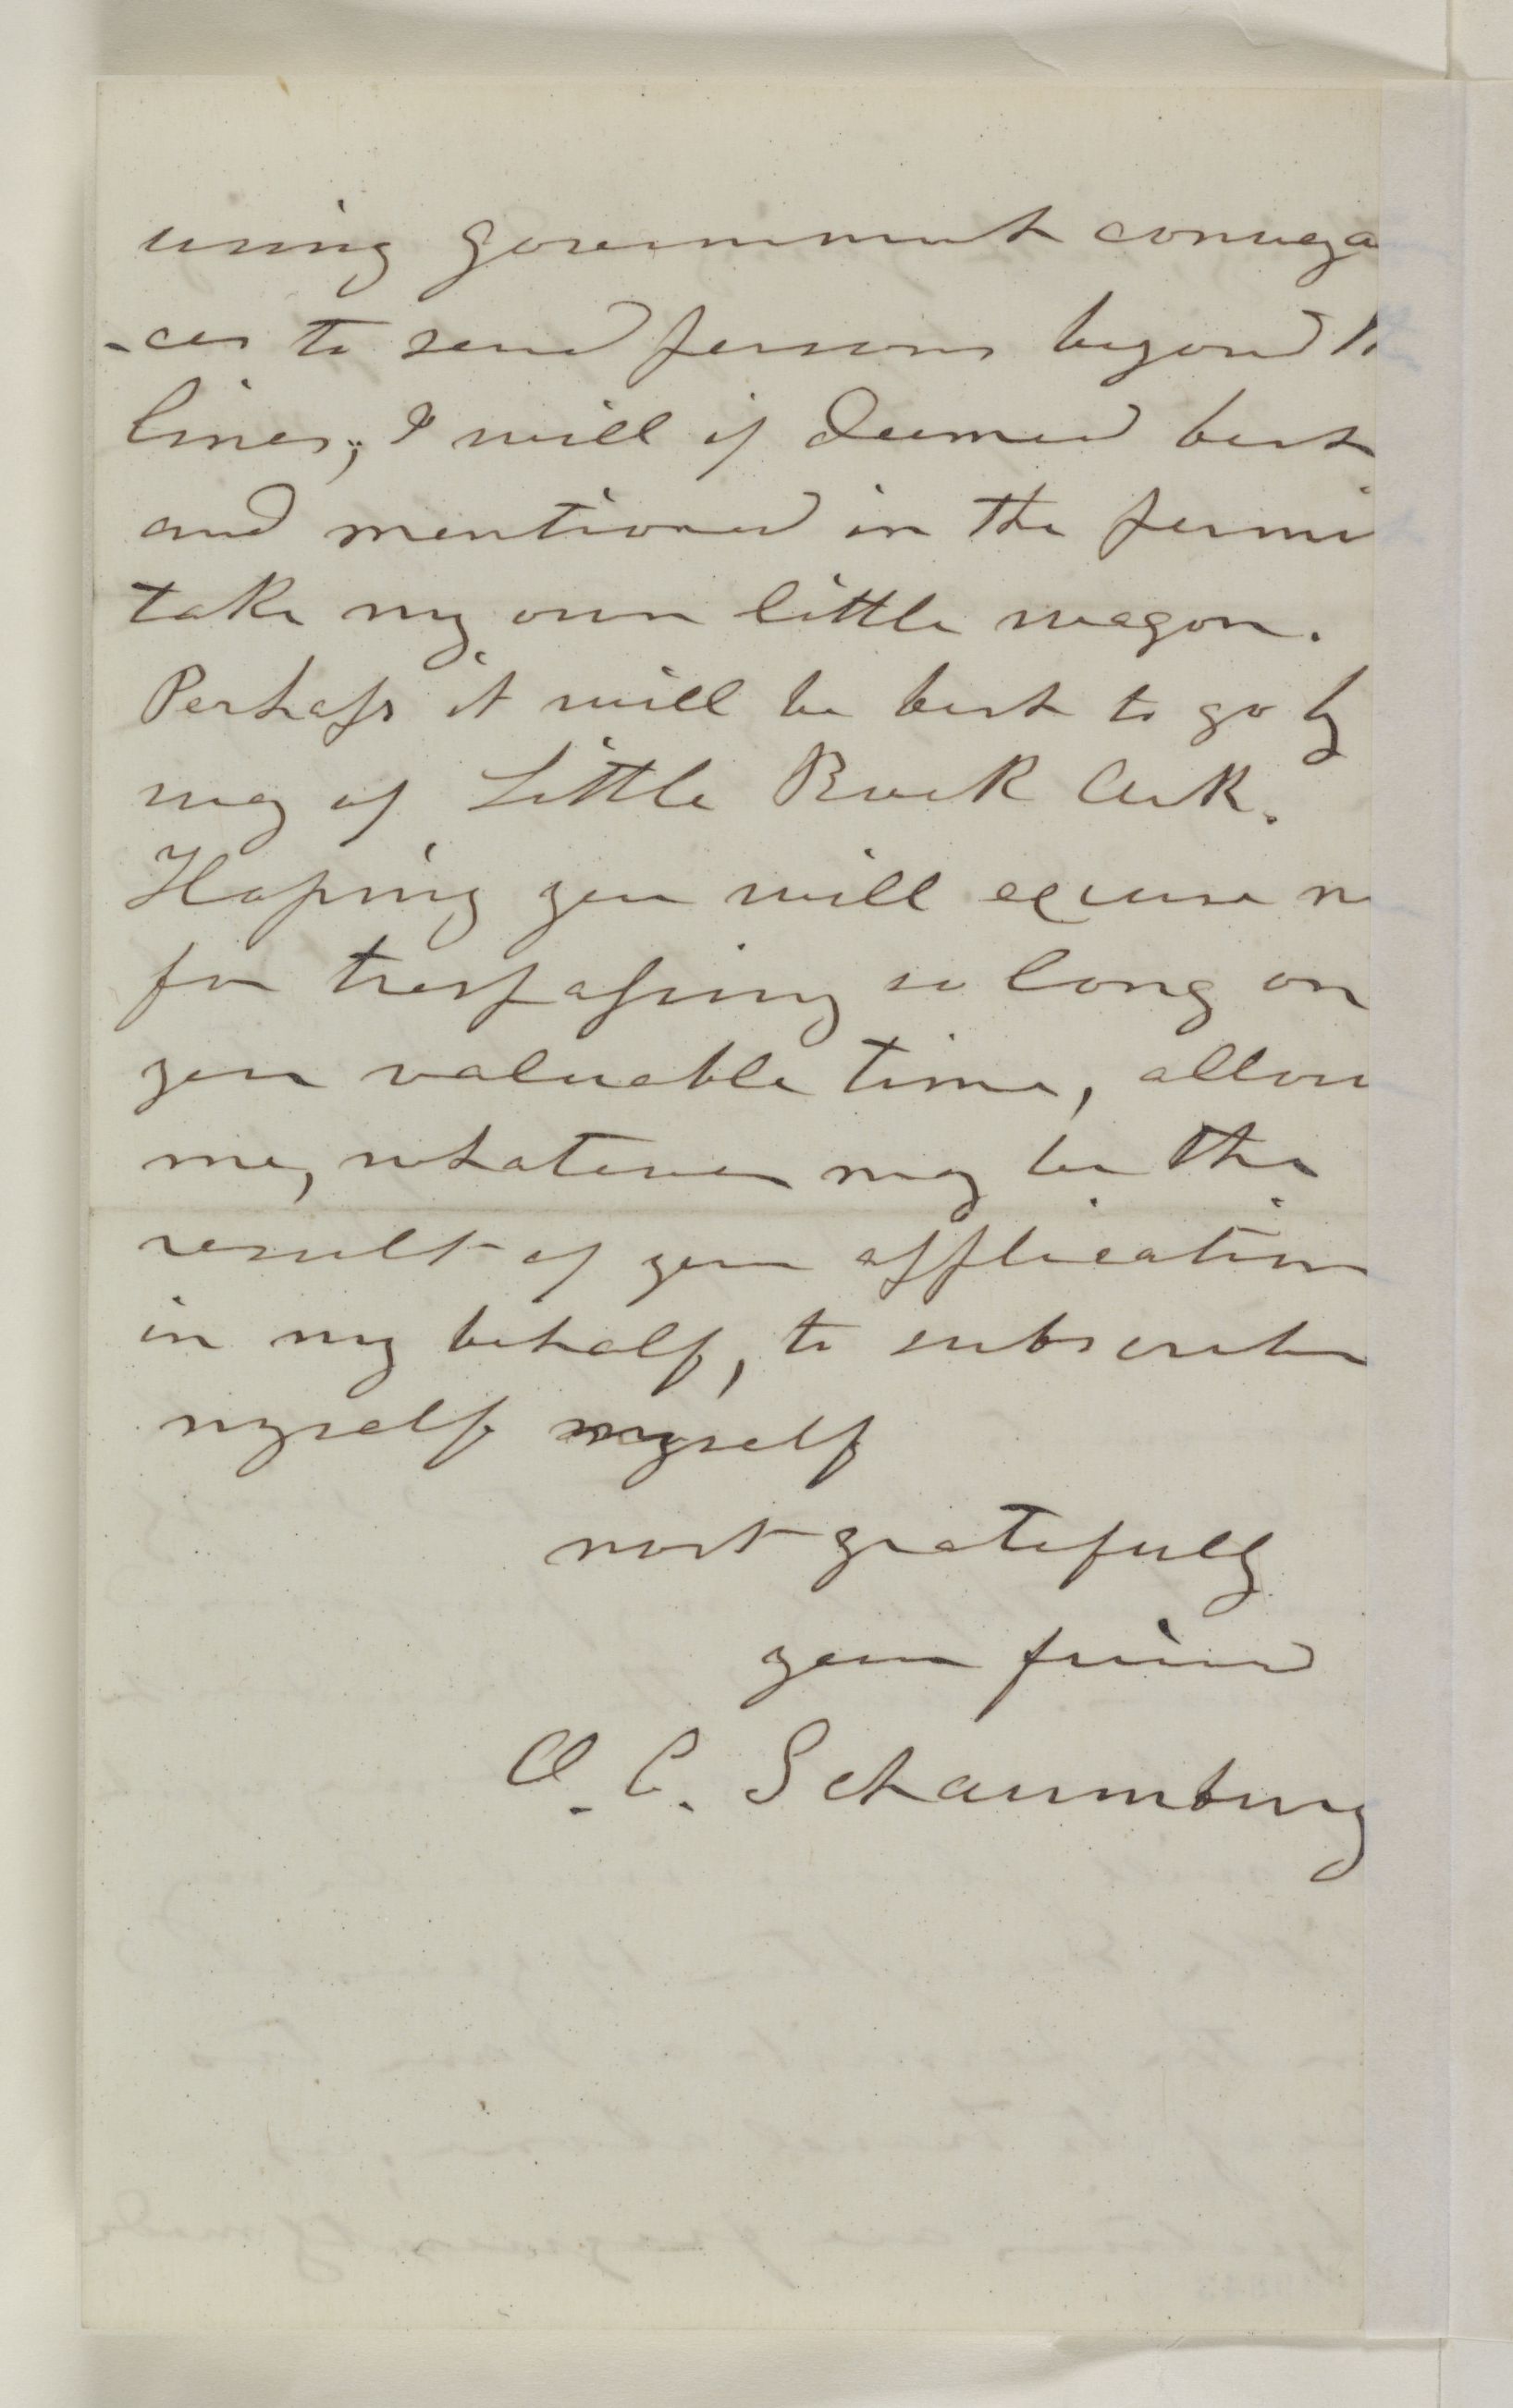 using government conveya
-ces to send persons beyond th
lines; I will if deemed best
and mentioned in the permi
take my own little wagon.
Perhaps it will be best to go by
way of Little Rock Ark.
Hoping you will excuse m
for trespassing so long on
your valuable time, allow
me, whatever may be the
result of your application
in my behalf, to subscribe
myself myself
most gratefully
your friend
O. C. Schaumburg